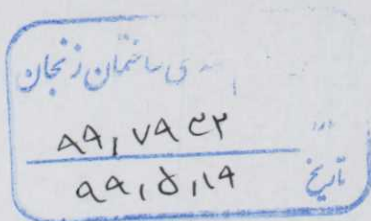 ساختمان زنجان
۹۹,۷۹۴۳
تاریخ ۹۹,۵,۱۹